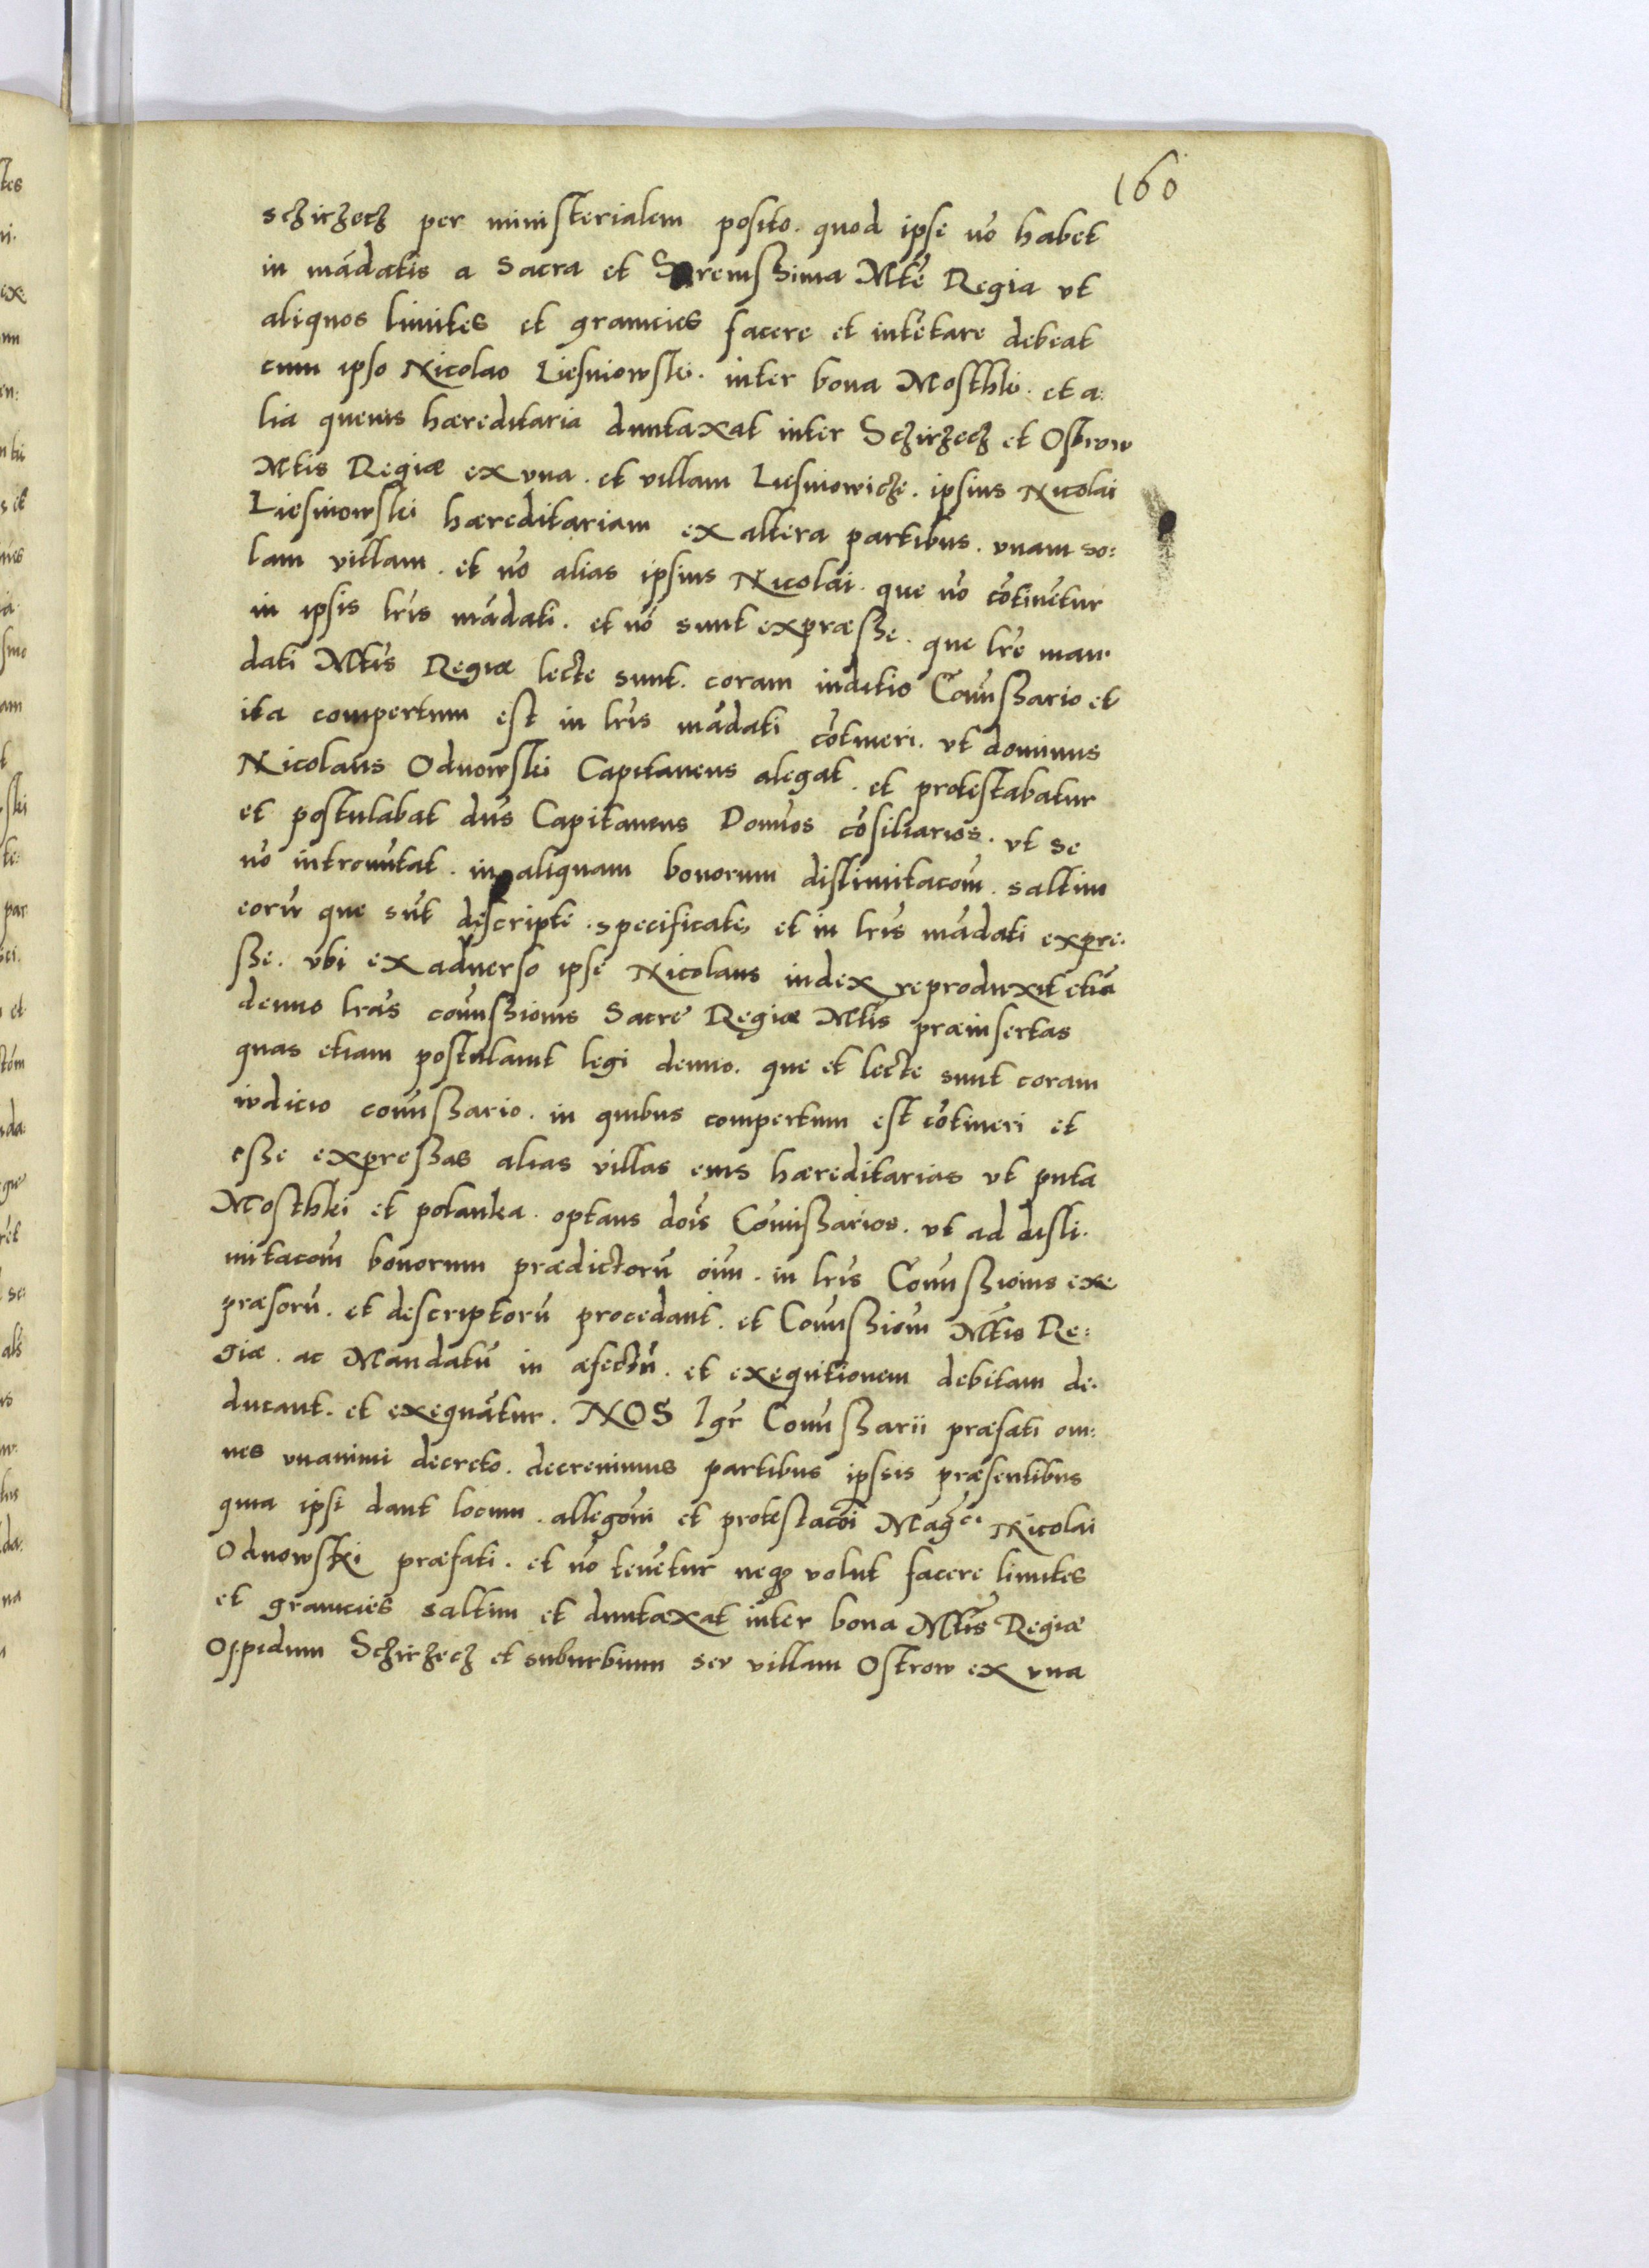 160
schirzech per ministerialem posito. quod ipse nō habet
in mādatis a Sacra et Serenissima Mtē Regia vt
aliquos limites et granicies facere et intētare debeat
cum ipso Nicolao Liesniowski. inter bona Mosthki. et a:
lia quenis hæreditaria duntaxat inter Schirzech et Ostrow
Mtis Regiæ ex vna. et villam Liesniowicze. ipsius Nicolai
Liesniowski hæreditariam ex altera partibus. vnam so:
lam villam. et nō alias ipsius Nicolai. que nō cōtinētur
in ipsis lrīs mādati. et nō sunt expræsse. que lrē man.
dati Mtīs Regiæ lecte sunt. coram inditio Comīssario et
ita compertum est in lrīs mādati cōtineri. vt dominus
Nicolaus Odnowski Capitaneus alegat. et protestabatur
et postulabat dn̄s Capitaneus Domīos cōsiliarios. vt se
nō intromittat. in aliquam bonorum dislimitacōm. saltim
eorū que sūt descripte. specificate, et in lrīs mādati expre.
sse. vbi ex aduerso ipse Nicolaus iudex reproduxit etiā
denuo lrās comīssionis Sacre Regiæ Mtis præinsertas
quas etiam postulauit legi denuo. que et lecte sunt coram
iudicio comīssario. in quibus compertum est cōtineri et
esse expressas alias villas eius hæreditarias vt puta
Mosthki et polanka. optans doīs Comīssarios. vt ad disli.
mitacōm bonorum prædictorū oīm. in lrīs Comīssionis exe
præsorū. et descriptorū procedant. et Comīssiōm Mtīs Re:
giæ. ac Mandatū in æfectū. et exequtionem debitam de.
ducant. et exequātur. NOS Igr̄ Comīssarii præfati om:
nes vnanimi decreto. decreuimus partibus ipssis præsentibus
quia ipsi dant locum. allegōni et protestacōi Mag̃ci Nicolai
Odnowski præfati. et nō tenētur neq3 volūt facere limites
et granicies saltim et duntaxat inter bona Mtīs Regiæ
Oppidum Schirzech et suburbium seu villam Ostrow ex vna